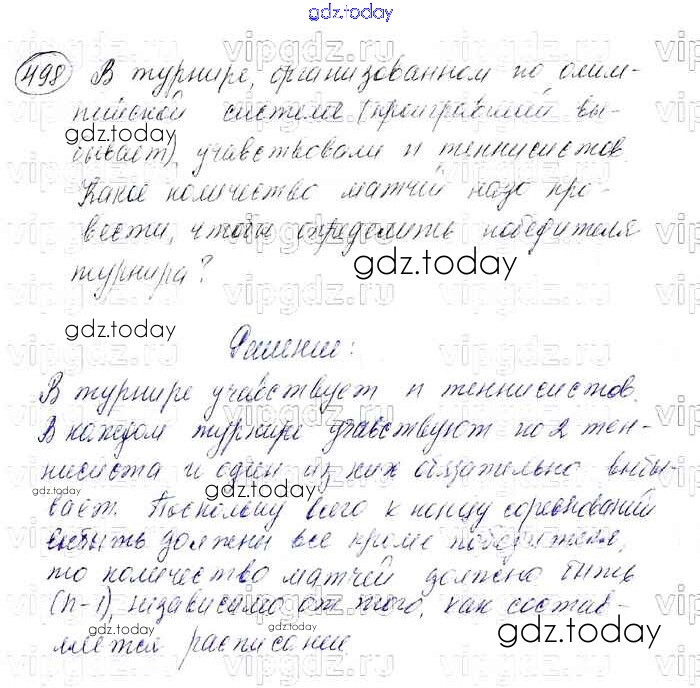 gdz.today
498 В турнире, организованном по олим-
пийской системе (проигравший вы-
бывает), учавствовали n теннисистов.
Какое количество матчей надо про-
вести, чтобы определить победителя
турнира?
Решение:
В турнире учавствует n теннисистов.
В каждом турнире учавствуют по 2 тен-
нисиста и один из них обязательно выбы-
вает. Поскольку всего к концу соревнований
выбыть должны все кроме победителя,
то количество матчей должно быть
(n-1), независимо от того, как состав-
ляется расписание.
gdz.today